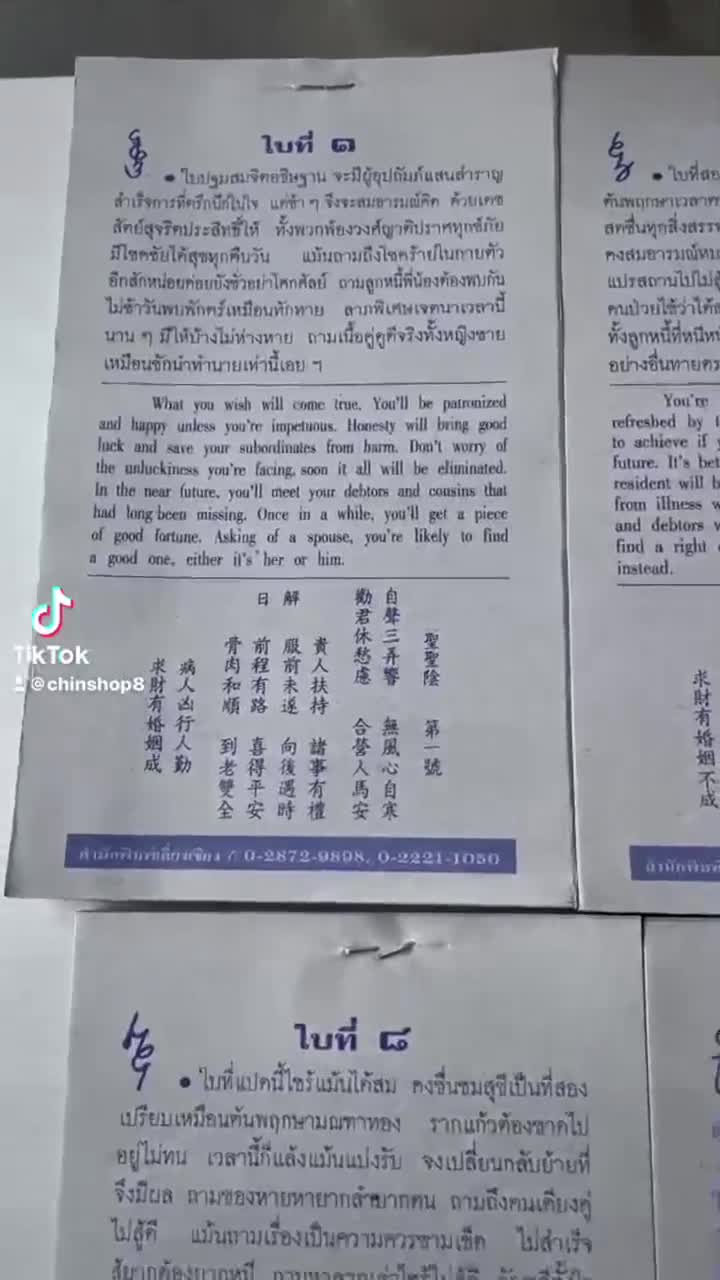 ใบที่ ๑
• ใบปฐมสมจิตอธิษฐาน จะมีผู้อุปถัมภ์แสนสำราญ
สำเร็จการที่ตรึกนึกในใจ แต่ช้า ๆ จึงจะสมอารมณ์คิด ด้วยเดช
สัตย์สุจริตประสิทธิ์ให้ ทั้งพวกพ้องวงศ์ญาติปราศทุกข์ภัย
มีโชคชัยได้สุขทุกคืนวัน แม้นถามถึงโชคร้ายในกายตัว
อีกสักหน่อยค่อยยังชั่วอย่าโศกศัลย์ ถามลูกหนี้พี่น้องต้องพบกัน
ไม่ช้าวันพบพักตร์เหมือนทักทาย ลาภพิเศษเจตนาเวลานี้
นาน ๆ มีให้บ้างไม่ห่างหาย ถามเนื้อคู่คู่ดีจริงทั้งหญิงชาย
เหมือนชักนำทำนายเท่านี้เอย ฯ
What you wish will come true. You'll be patronized
and happy unless you're impetuous. Honesty will bring good
luck and save your subordinates from harm. Don't worry of
the unluckiness you're facing, soon it all will be eliminated.
In the near future, you'll meet your debtors and cousins that
had long been missing. Once in a while, you'll get a piece
of good fortune. Asking of a spouse, you're likely to find
a good one, either it's her or him.
聖聖陰 第一號
自聲三弄響 無風心自寒
勸君休愁慮 合營人馬安
解曰
貴人扶持 諸事有禮
服前未遂 向後遇時
前程有路 喜得平安
骨肉和順 到老雙全
病人凶行人動
求財有婚姻成
สำนักพิมพ์เลี่ยงเซียง / 0-2872-9898, 0-2221-1050
ใบที่สอ
ต้นพฤกษาเวลา
สดชื่นทุกสิ่งสรร
คงสมอารมณ์หม
แปรสถานไปไม่สู้
คนป่วยไข้ว่าได้
ทั้งลูกหนี้ที่หนีห
อย่างอื่นทายคร
You're
refreshed by t
to achieve if y
future. It's bet
resident will b
from illness w
and debtors w
find a right
instead.
求財有婚姻不成
TikTok
@chinshop8
ใบที่ ๘
• ใบที่แปดนี้ไซร้แม้นได้สม คงชื่นชมสุขีเป็นที่สอง
เปรียบเหมือนต้นพฤกษามณฑาทอง รากแก้วต้องขาดไป
อยู่ไม่ทน เวลานี้ก็แล้งแม้นแบ่งรับ จงเปลี่ยนกลับย้ายที่
จึงมีผล ถามของหายหายากลำบากตน ถามถึงคนเคียงคู่
ไม่สู้ดี แม้นถามเรื่องเป็นความควรขามเข็ด ไม่สำเร็จ